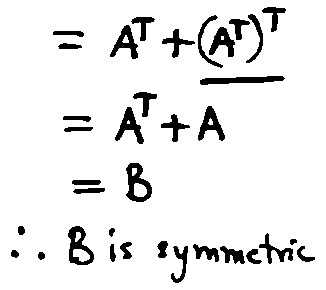 = Aᵀ + (Aᵀ)ᵀ
= Aᵀ + A
= B
∴ B is symmetric